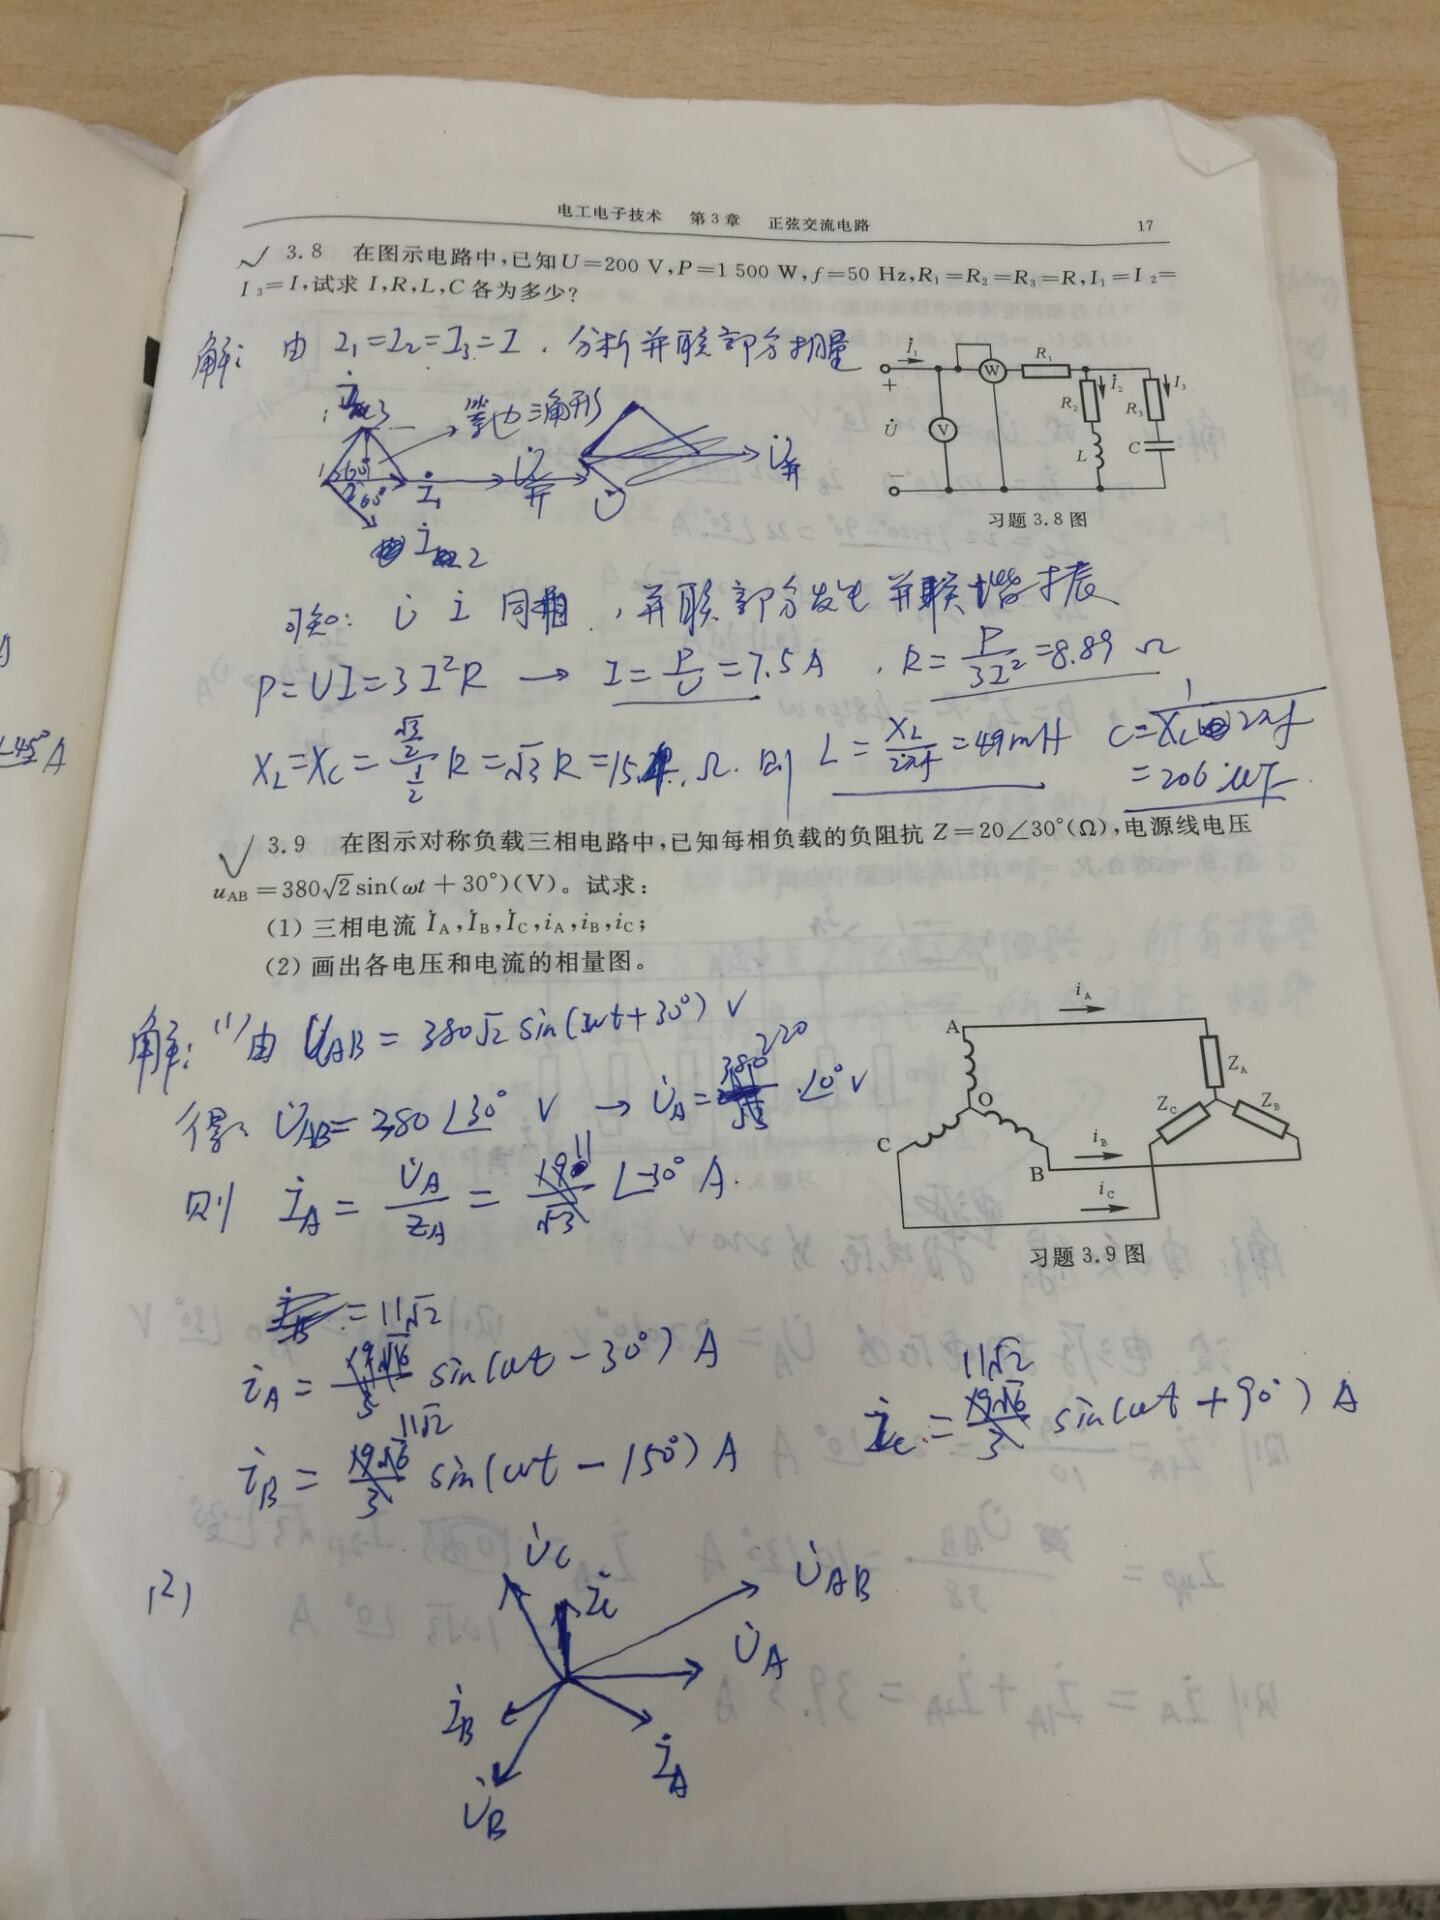 电工电子技术 第3章 正弦交流电路 17
3.8 在图示电路中,已知U=200 V,P=1 500 W,f=50 Hz,R₁=R₂=R₃=R,I₁=I₂=
I₃=I,试求 I,R,L,C 各为多少?
解: 由 I₁=I₂=I₃=I . 分析并联部分相量
等边三角形
60°
60°
İ₁
U̇并
U̇并
İ₁
R₁
W
İ₂
I₃
R₂
R₃
+
U̇
V
L
C
−
习题 3.8 图
可知: U̇ İ 同相 , 并联部分发生并联谐振
P=UI=3I²R → I=P/U=7.5A , R=P/3I²=8.89 Ω
X_L=X_C=(√3/2)/(1/2) R=√3R=15.4 Ω. 则 L=X_L/2πf=49mH C=1/X_C 2πf
=206 μF
3.9 在图示对称负载三相电路中,已知每相负载的负阻抗 Z=20∠30°(Ω),电源线电压
u_AB=380√2 sin(ωt+30°)(V)。试求:
(1) 三相电流 İ_A,İ_B,İ_C,i_A,i_B,i_C;
(2) 画出各电压和电流的相量图。
解: (1) 由 U_AB = 380√2 sin(ωt+30°) V
得: U̇_AB = 380 ∠30° V → U̇_A = 220 ∠0° V
则 İ_A = U̇_A/Z_A = 11 ∠-30° A.
i_A
A
Z_A
O
Z_C
Z_B
C
i_B
B
i_C
习题 3.9 图
= 11√2
i_A = sin(ωt-30°) A
11√2
i_B = sin(ωt-150°) A
11√2
i_C = sin(ωt+90°) A
(2)
U̇_C
İ_C
U̇_AB
U̇_A
İ_B
İ_A
U̇_B
∠45° A